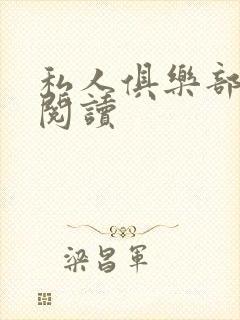 私人俱樂部
閱讀
梁昌軍